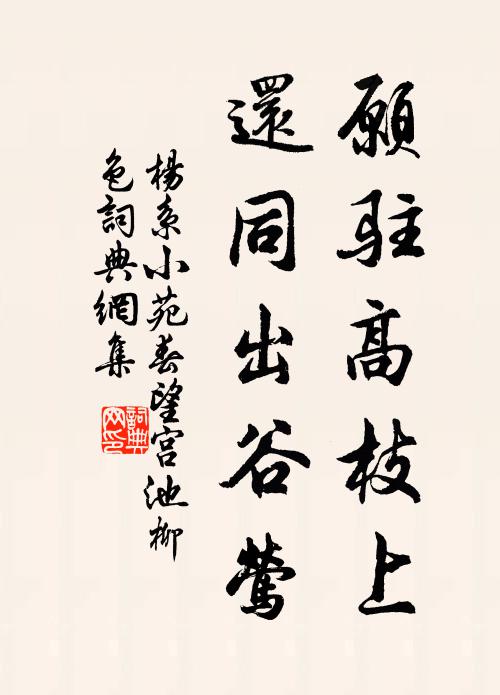 願駐高枝上
還同出谷鶯
楊系小苑春望宮池柳
色詞典網集
詞典
网印